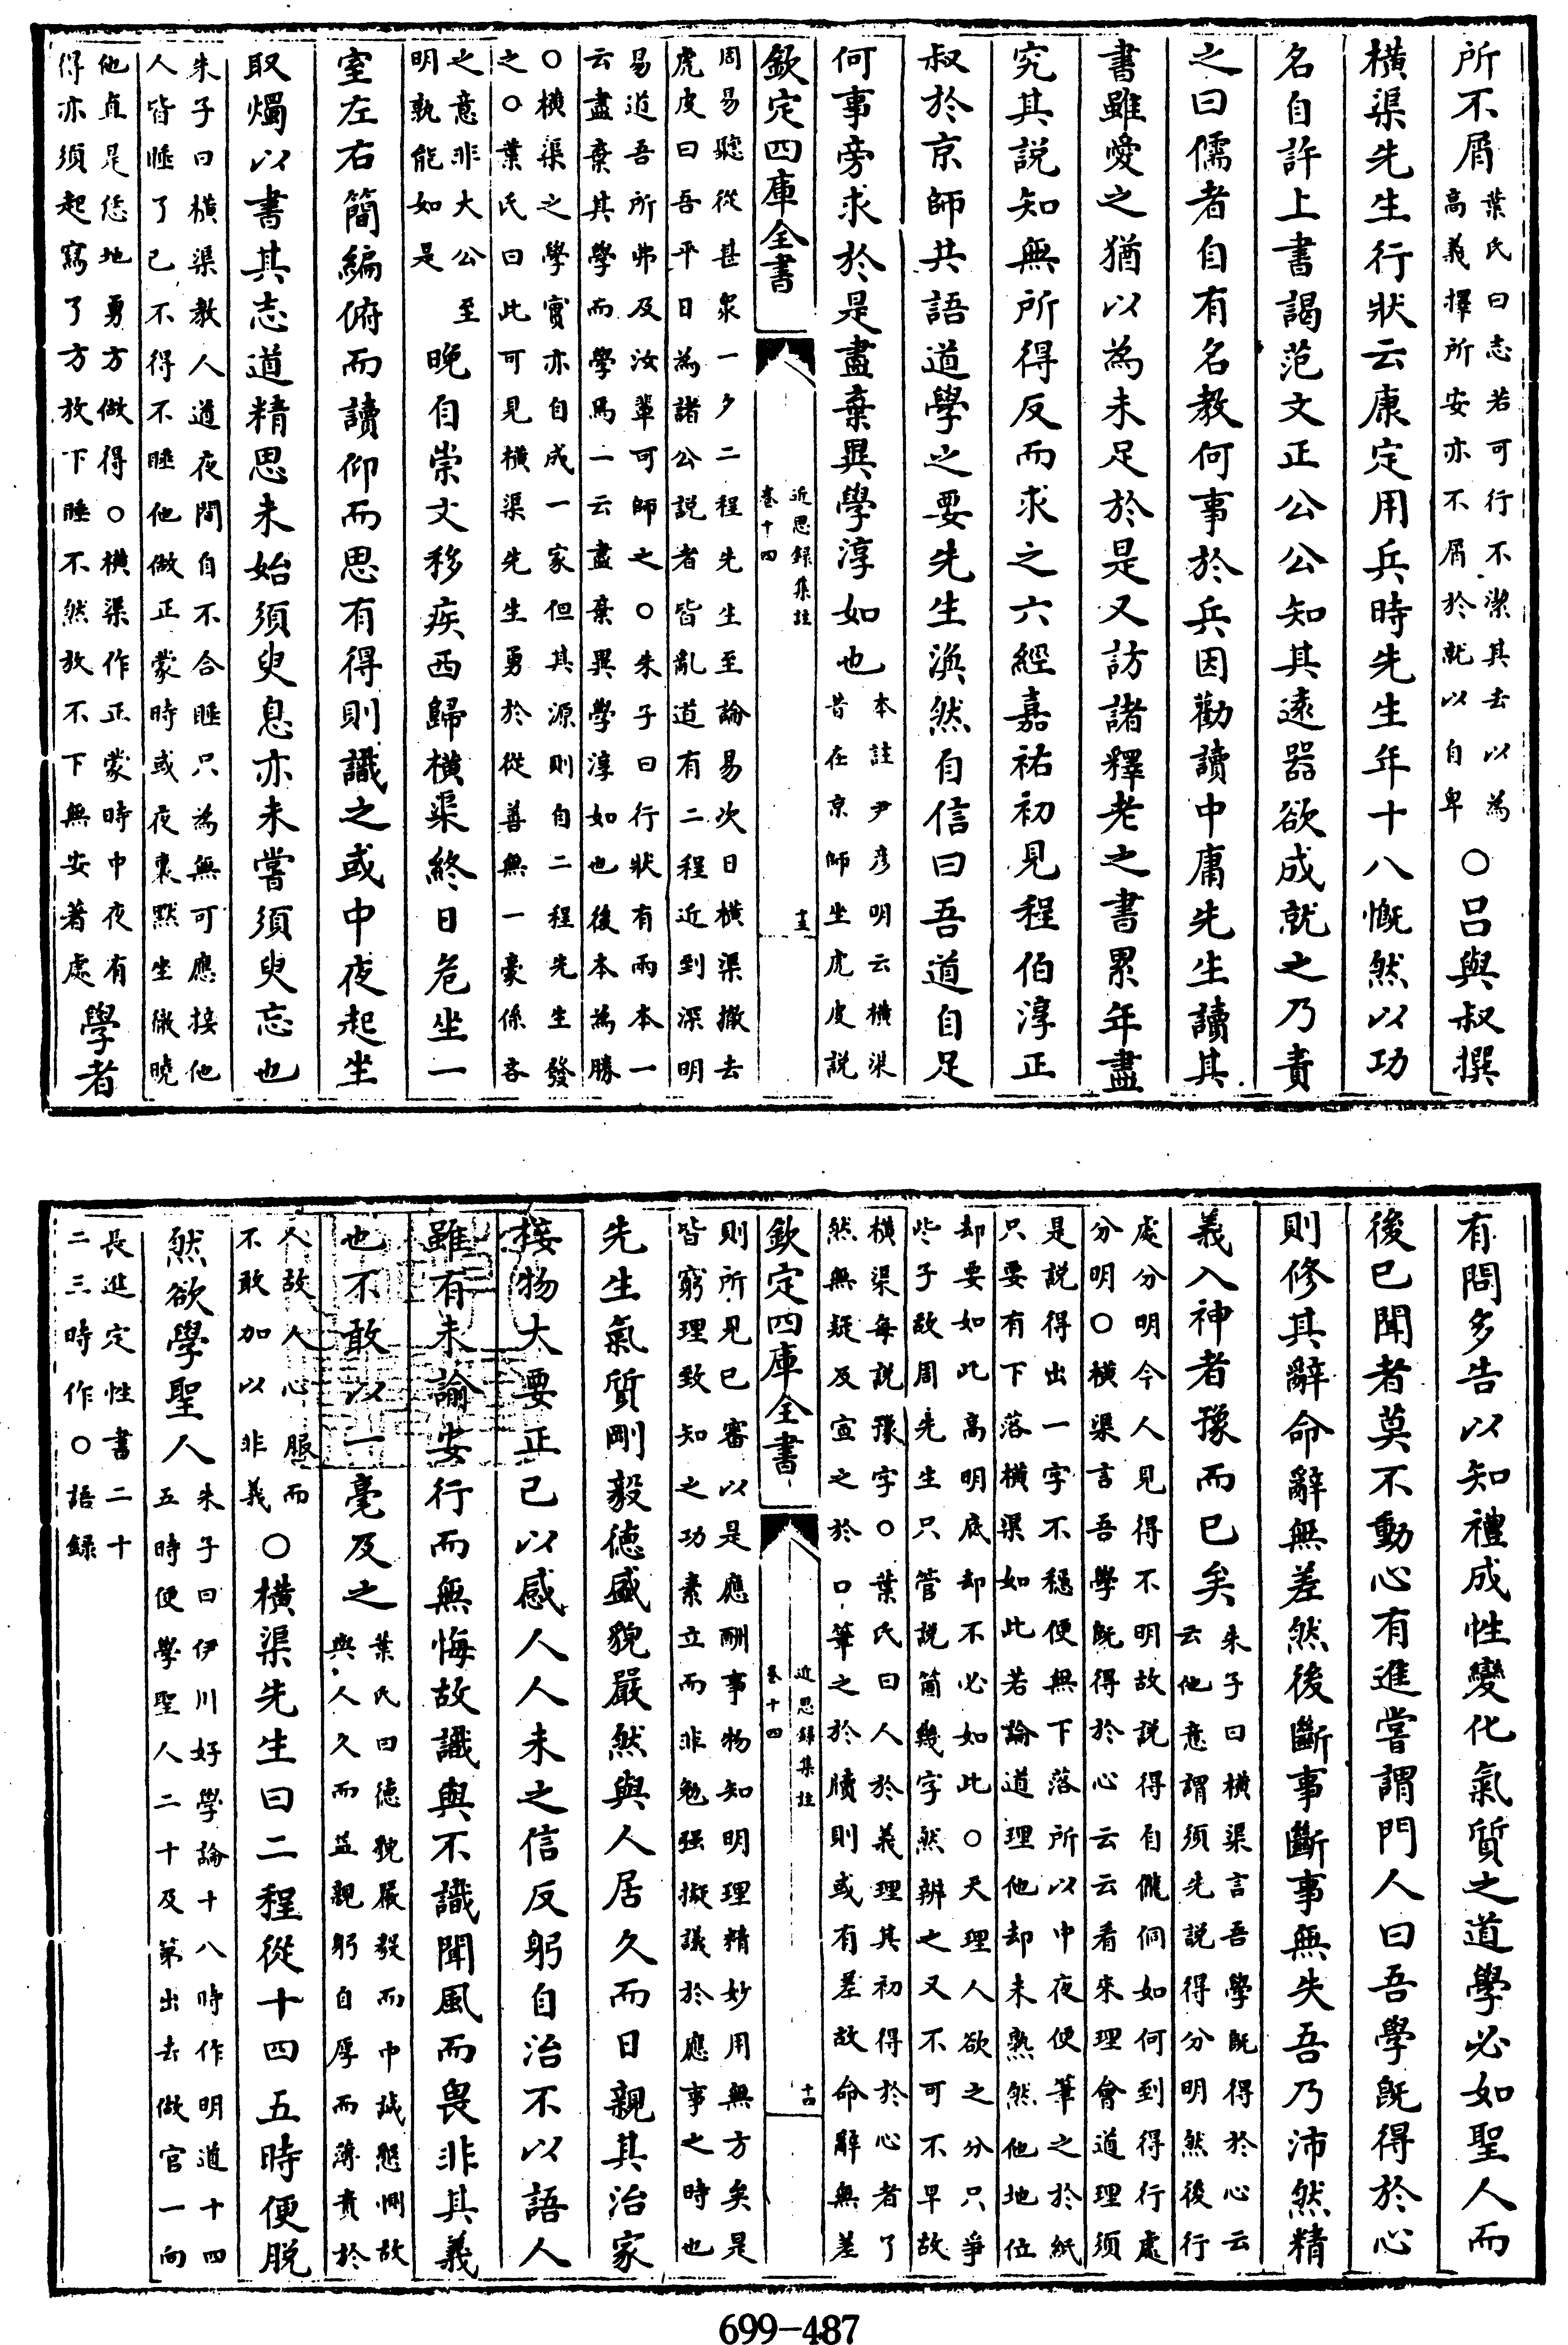 所不屑葉氏曰志若可行不潔其去以為高義擇所安亦不屑於就以自卑○呂與叔撰
橫渠先生行狀云康定用兵時先生年十八慨然以功
名自許上書謁范文正公公知其遠器欲成就之乃責
之曰儒者自有名教何事於兵因勸讀中庸先生讀其
書雖愛之猶以為未足於是又訪諸釋老之書累年盡
究其説知無所得反而求之六經嘉祐初見程伯淳正
叔於京師共語道學之要先生渙然自信曰吾道自足
何事旁求於是盡棄異學淳如也本註尹彦明云橫渠昔在京師坐虎皮説
欽定四庫全書 近思録集註 卷十四 十三
周易聽從甚衆一夕二程先生至論易次日橫渠撤去
虎皮曰吾平日為諸公説者皆亂道有二程近到深明
易道吾所弗及汝輩可師之○朱子曰行狀有兩本一
云盡棄其學而學焉一云盡棄異學淳如也後本為勝
○橫渠之學實亦自成一家但其源則自二程先生發
之○葉氏曰此可見橫渠先生勇於從善無一豪係吝
之意非大公至明孰能如是晚自崇文移疾西歸橫渠終日危坐一
室左右簡編俯而讀仰而思有得則識之或中夜起坐
取燭以書其志道精思未始須臾息亦未嘗須臾忘也
朱子曰橫渠教人道夜間自不合睡只為無可應接他
人皆睡了已不得不睡他做正蒙時或夜裏默坐徹曉
他直是恁地勇方做得○橫渠作正蒙時中夜有得亦須起寫了方放下睡不然放不下無安著處學者
有問多告以知禮成性變化氣質之道學必如聖人而
後已聞者莫不動心有進嘗謂門人曰吾學既得於心
則修其辭命辭無差然後斷事斷事無失吾乃沛然精
義入神者豫而已矣朱子曰橫渠言吾學既得於心云云他意謂須先説得分明然後行
處分明今人見得不明故説得自儱侗如何到得行處
分明○橫渠言吾學既得於心云云看來理會道理須
是説得出一字不穩便無下落所以中夜便筆之於紙
只要有下落橫渠如此若論道理他却未熟然他地位
却要如此高明底却不必如此○天理人欲之分只爭
些子故周先生只管説箇幾字然辨之又不可不早故
橫渠每説豫字○葉氏曰人於義理其初得於心者了
然無疑及宣之於口筆之於牘則或有差故命辭無差
欽定四庫全書 近思録集註 卷十四 十四
則所見已審以是應酬事物知明理精妙用無方矣是
皆窮理致知之功素立而非勉强擬議於應事之時也
先生氣質剛毅德盛貌嚴然與人居久而日親其治家
接物大要正己以感人人未之信反躬自治不以語人
雖有未諭安行而無悔故識與不識聞風而畏非其義
也不敢以一毫及之葉氏曰德貌嚴毅而中誠懇惻故與人久而益親躬自厚而薄責於
人故人心服而不敢加以非義○橫渠先生曰二程從十四五時便脱
然欲學聖人朱子曰伊川好學論十八時作明道十四五時便學聖人二十及第出去做官一向
長進定性書二十二三時作○語録
699-487